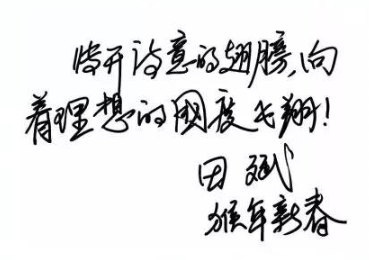 展开诗意的翅膀,向
着理想的國度飞翔!
田斌
猴年新春